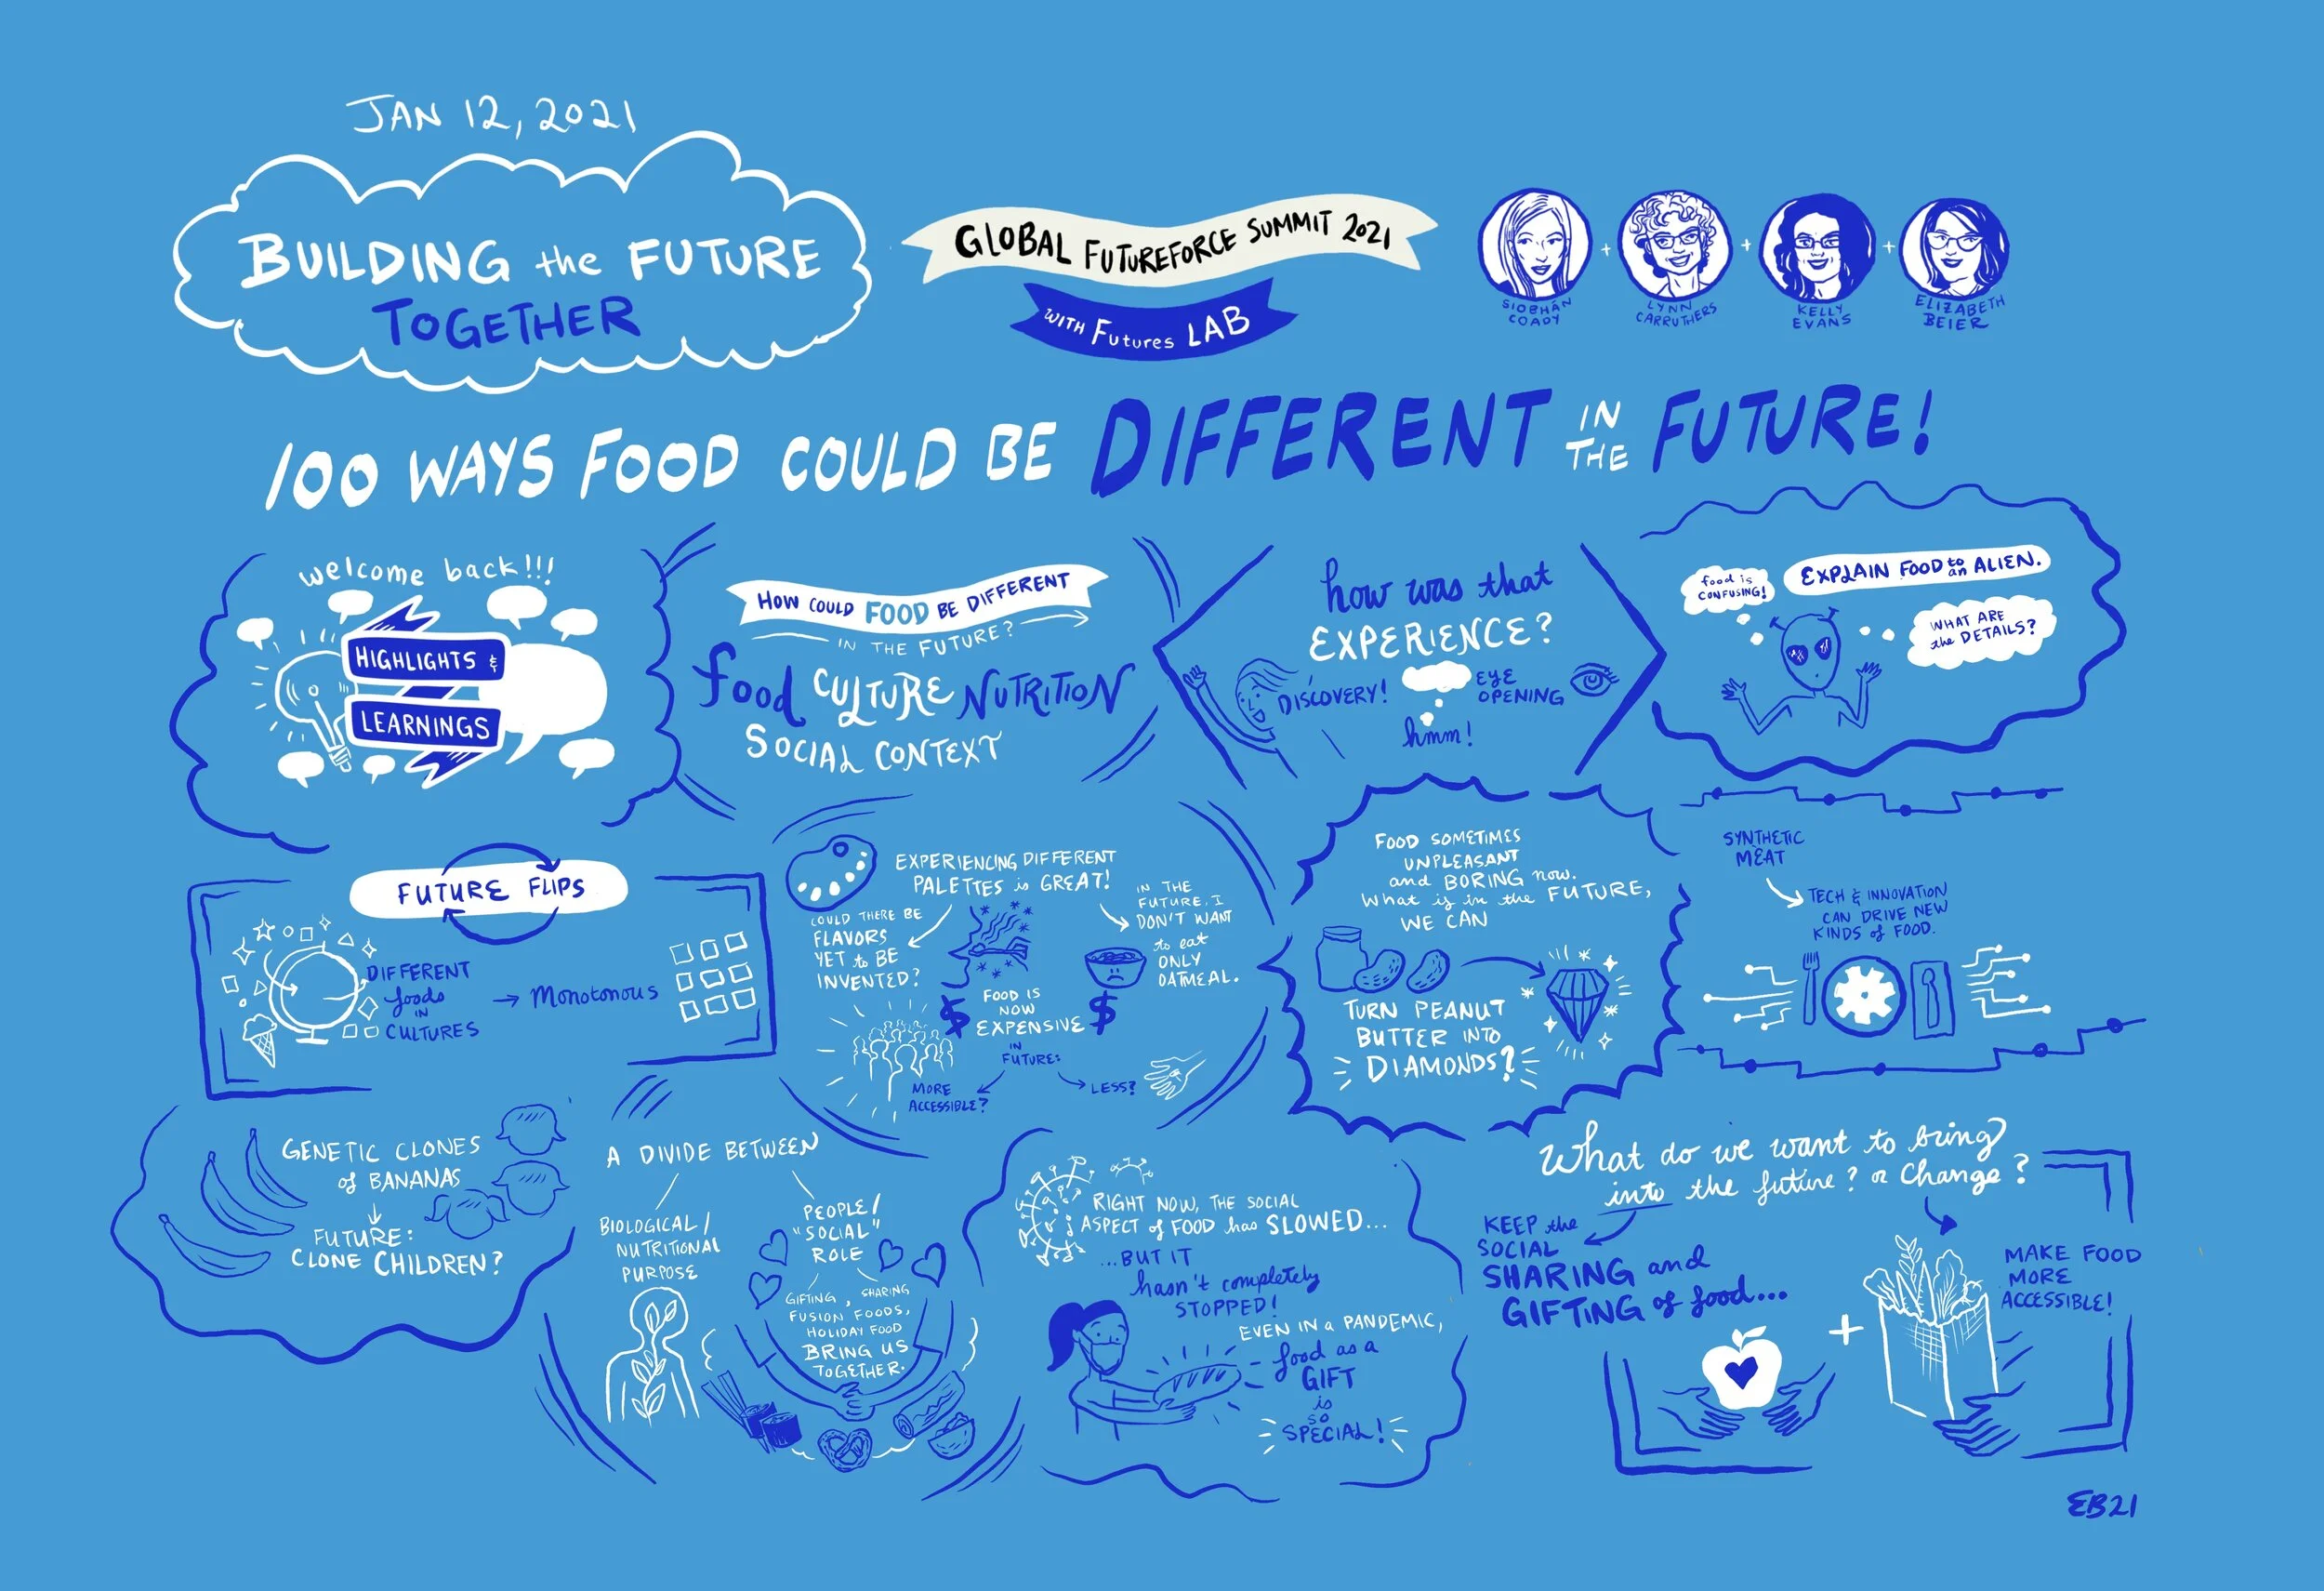 JAN 12, 2021
BUILDING the FUTURE
TOGETHER
GLOBAL FUTUREFORCE SUMMIT 2021
WITH FUTURES LAB
SIOBHÁN
COADY
+
LYNN
CARRUTHERS
+
KELLY
EVANS
+
ELIZABETH
BEIER
100 WAYS FOOD COULD BE DIFFERENT IN THE FUTURE!
welcome back!!!
HIGHLIGHTS &
LEARNINGS
HOW COULD FOOD BE DIFFERENT
IN THE FUTURE?
food CULTURE NUTRITION
SOCIAL CONTEXT
how was that
EXPERIENCE?
DISCOVERY!
EYE
OPENING
hmm!
EXPLAIN FOOD to an ALIEN.
food is
CONFUSING!
WHAT ARE
the DETAILS?
FUTURE FLIPS
DIFFERENT
foods
IN
CULTURES
→ Monotonous
EXPERIENCING DIFFERENT
PALETTES is GREAT!
COULD THERE BE
FLAVORS
YET to BE
INVENTED?
IN THE
FUTURE, I
DON'T WANT
to eat
ONLY
OATMEAL.
$ FOOD IS
NOW
EXPENSIVE $
IN
FUTURE:
MORE
ACCESSIBLE?
LESS?
FOOD SOMETIMES
UNPLEASANT
and BORING now.
What if in the FUTURE,
WE CAN
TURN PEANUT
BUTTER INTO
DIAMONDS?
SYNTHETIC
MEAT
TECH & INNOVATION
CAN DRIVE NEW
KINDS of FOOD.
GENETIC CLONES
of BANANAS
FUTURE:
CLONE CHILDREN?
A DIVIDE BETWEEN
BIOLOGICAL/
NUTRITIONAL
PURPOSE
PEOPLE/
"SOCIAL"
ROLE
GIFTING, SHARING
FUSION FOODS,
HOLIDAY FOOD
BRING US
TOGETHER.
RIGHT NOW, THE SOCIAL
ASPECT of FOOD has SLOWED...
...BUT IT
hasn't completely
STOPPED!
EVEN IN a PANDEMIC,
food as a
GIFT
is
SO
SPECIAL!
What do we want to bring
into the future? or Change?
KEEP the
SOCIAL
SHARING and
GIFTING of food...
+
MAKE FOOD
MORE
ACCESSIBLE!
EB21